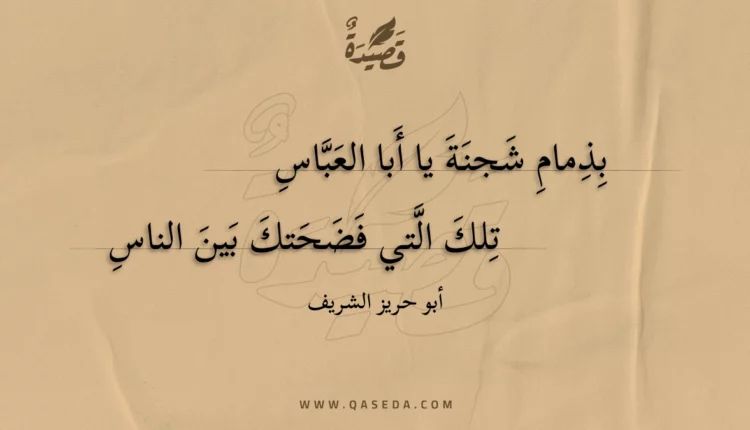 قَصِيدَةٌ
بِذِمامِ شَجنَةَ يا أَبا العَبَّاسِ
تِلكَ الَّتي فَضَحَتكَ بَينَ الناسِ
أبو حريز الشريف
WWW.QASEDA.COM